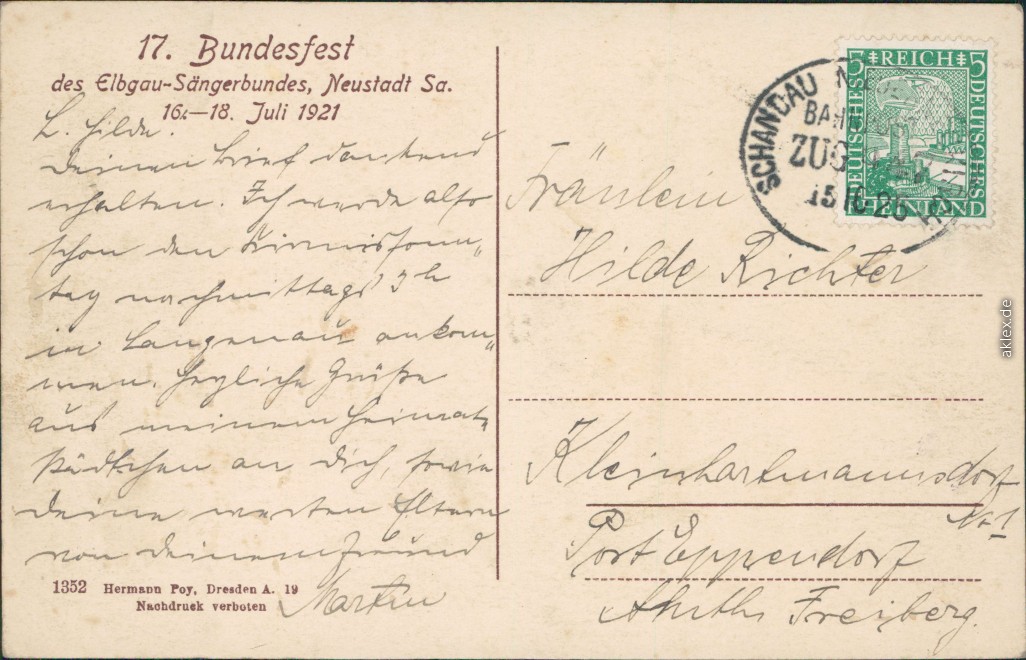 17. Bundesfest
des Elbgau-Sängerbundes, Neustadt Sa.
16.—18. Juli 1921
L. Hilde.
Deinen Brief dankend
erhalten. Ich werde also
schon den Kirmissonn„
tag nachmittags 3h
in Langenau ankom„
men. Herzliche Grüße
aus meinem Heimat„
städtchen an Dich, sowie
deine werten Eltern
von Deinem Freund
Martin
1352 Hermann Poy, Dresden A. 19
Nachdruck verboten
5 REICH 5
DEUTSCHES
DEUTSCHES
RHEINLAND
SCHANDAU
BAH
ZUG
15 10 25
Fräulein
Hilde Richter
Kleinhartmannsdorf
No 1
Post Eppendorf
Amtsh. Freiberg.
aklex.de